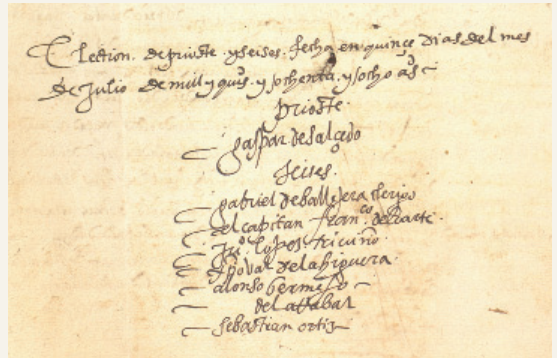 Election. de prioste. y seises. fecha en quinçe dias del mes
de Julio de mill y quis. y ochenta. y ocho as
prioste.
gaspar de salçedo
seises.
gabriel de ballejera clerigo
el capitan franco. de
Juo. lopes
de la higuera.
alonso bermejo
del
sebastian ortiz